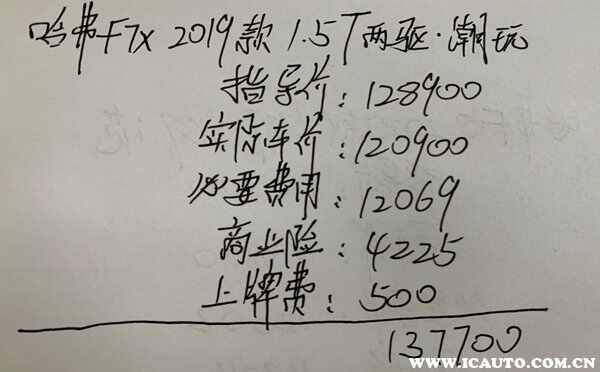 哈弗F7x 2019款 1.5T两驱·潮玩
指导价：128900
实际车价：120900
必要费用：12069
商业险：4225
上牌费：500
137700
WWW.ICAUTO.COM.CN